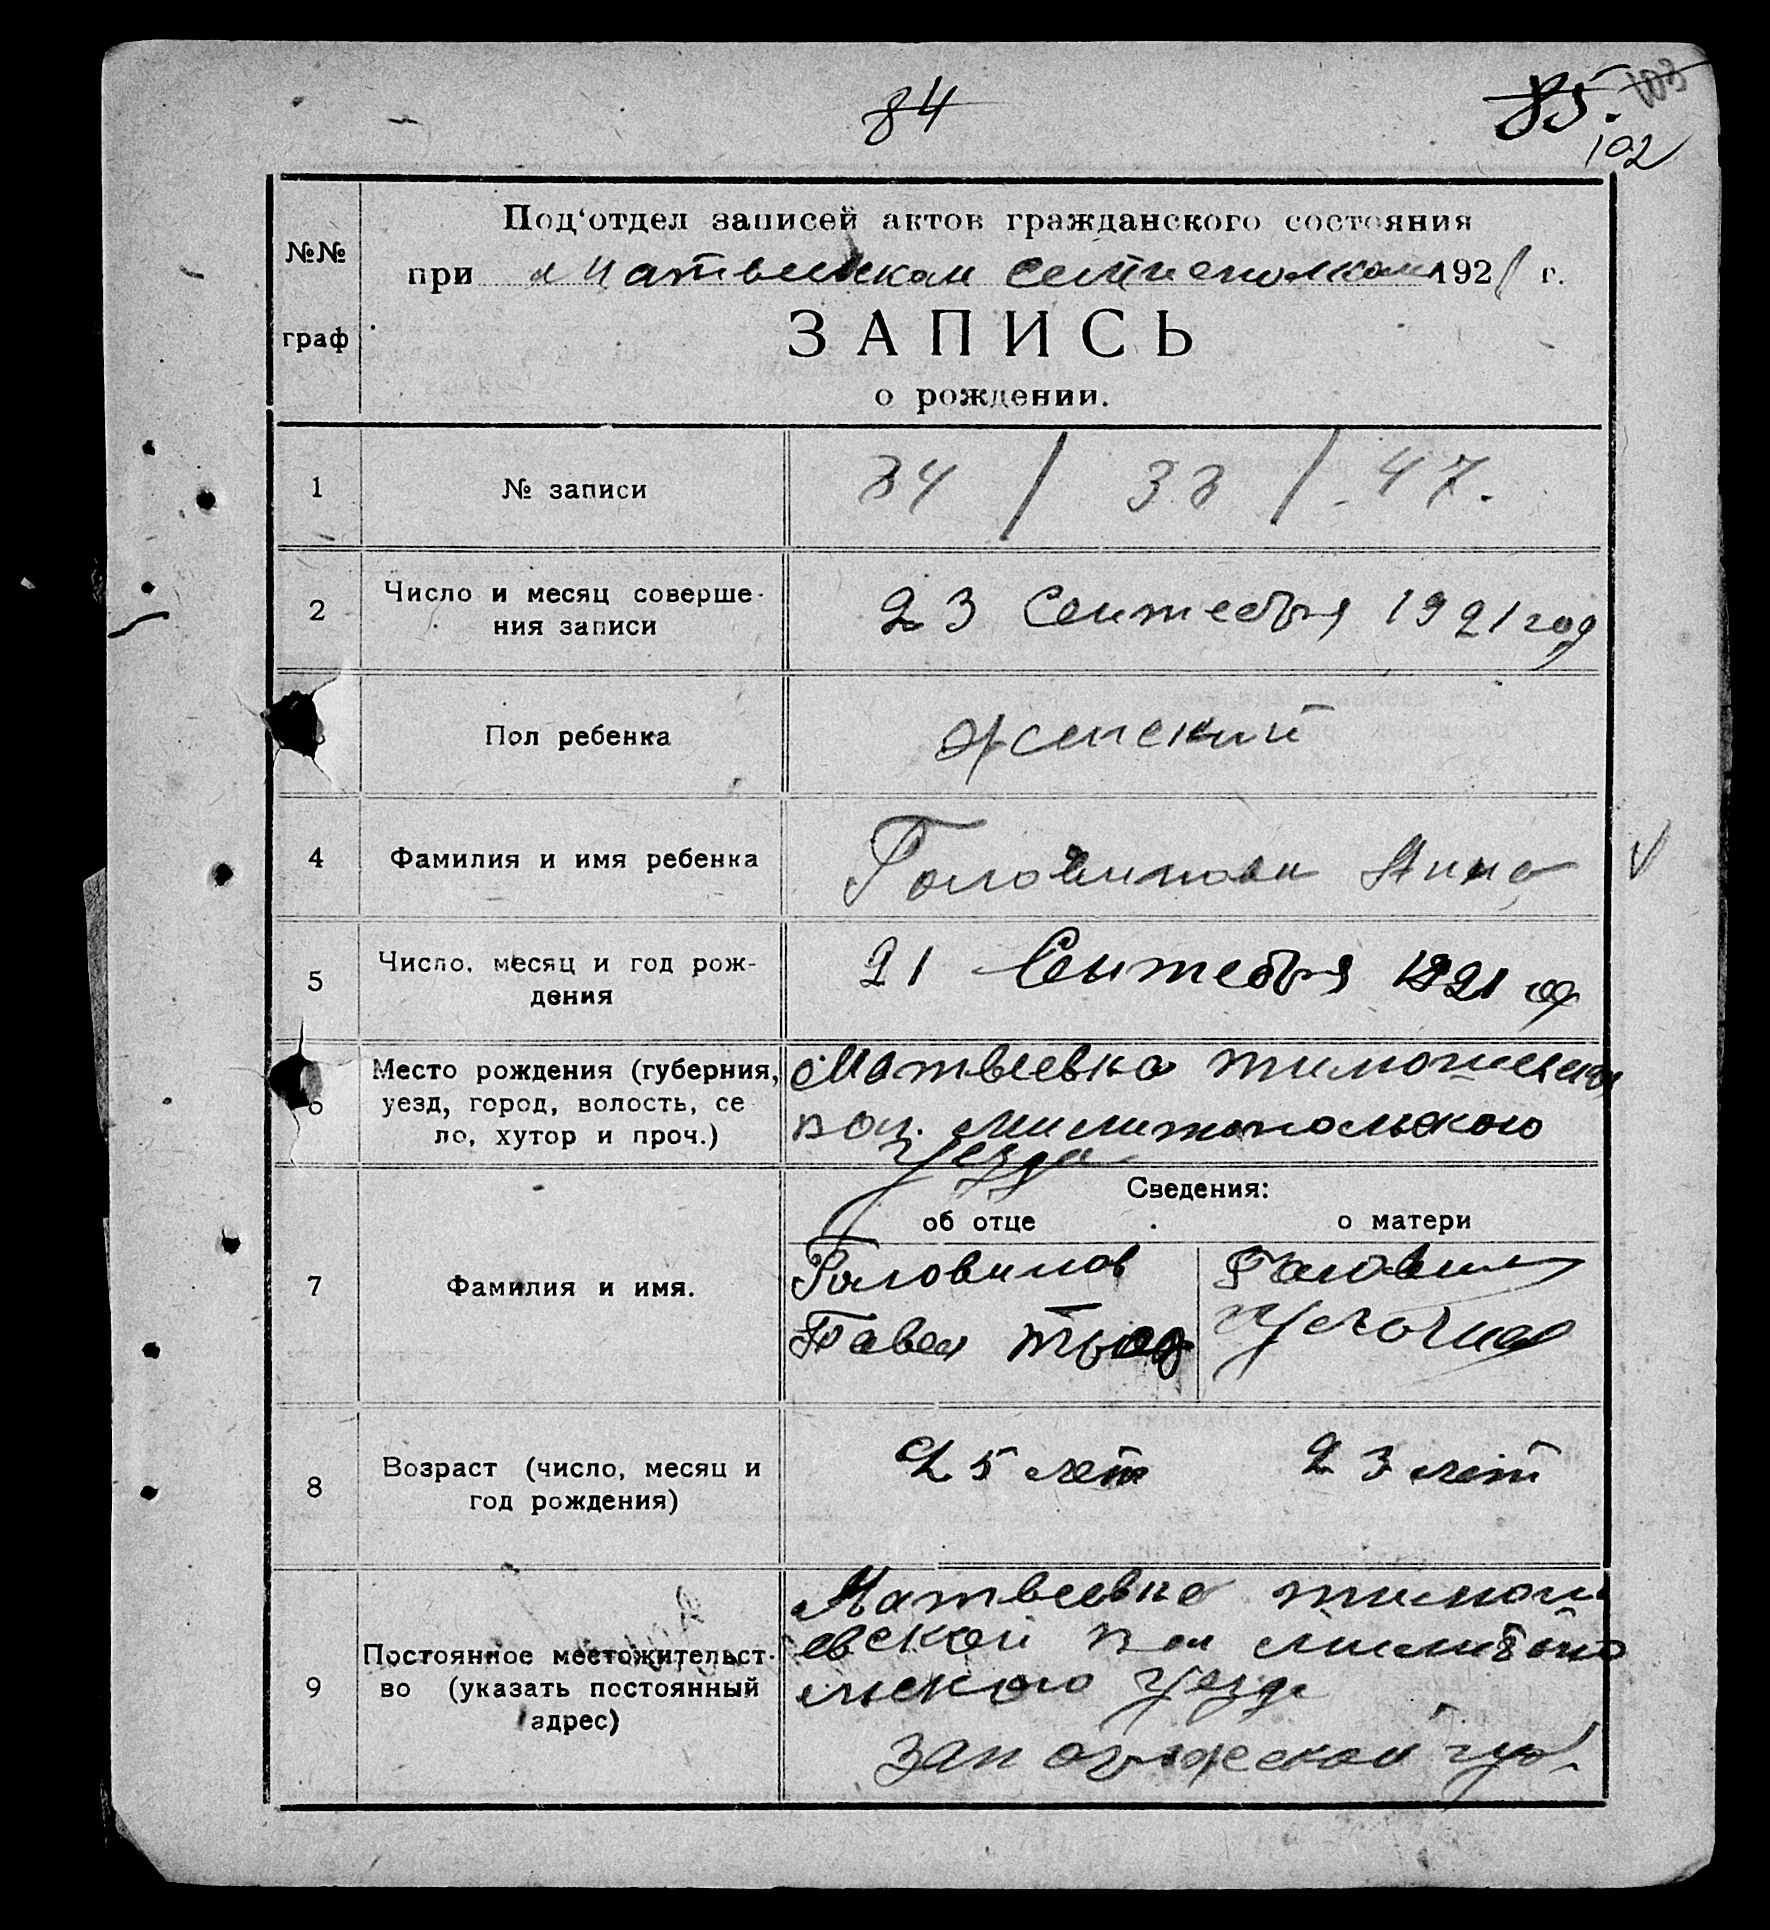 84
85.
102
№№
граф
Под'отдел записей актов гражданского состояния
при Матвеевском сельисполкоме 1921 г.
ЗАПИСЬ
о рождении.
1 № записи 84 / 38 / 47.
2 Число и месяц соверше-
ния записи 23 Сентебря 1921 год
Пол ребенка женский
4 Фамилия и имя ребенка Головинова Анна
5 Число, месяц и год рож-
дения 21 Сентебря 1921
6 Место рождения (губерния,
уезд, город, волость, се
ло, хутор и проч.)
Матвеевка
вол. милитопольского
уезда
Сведения:
об отце о матери
7 Фамилия и имя.
Головинов
Павел
8 Возраст (число, месяц и
год рождения)
25 лет 23 лет
9 Постоянное местожительст-
во (указать постоянный
адрес)
Матвеевка тимош
евской вол милитопо
льского уезда
запорожской губ.